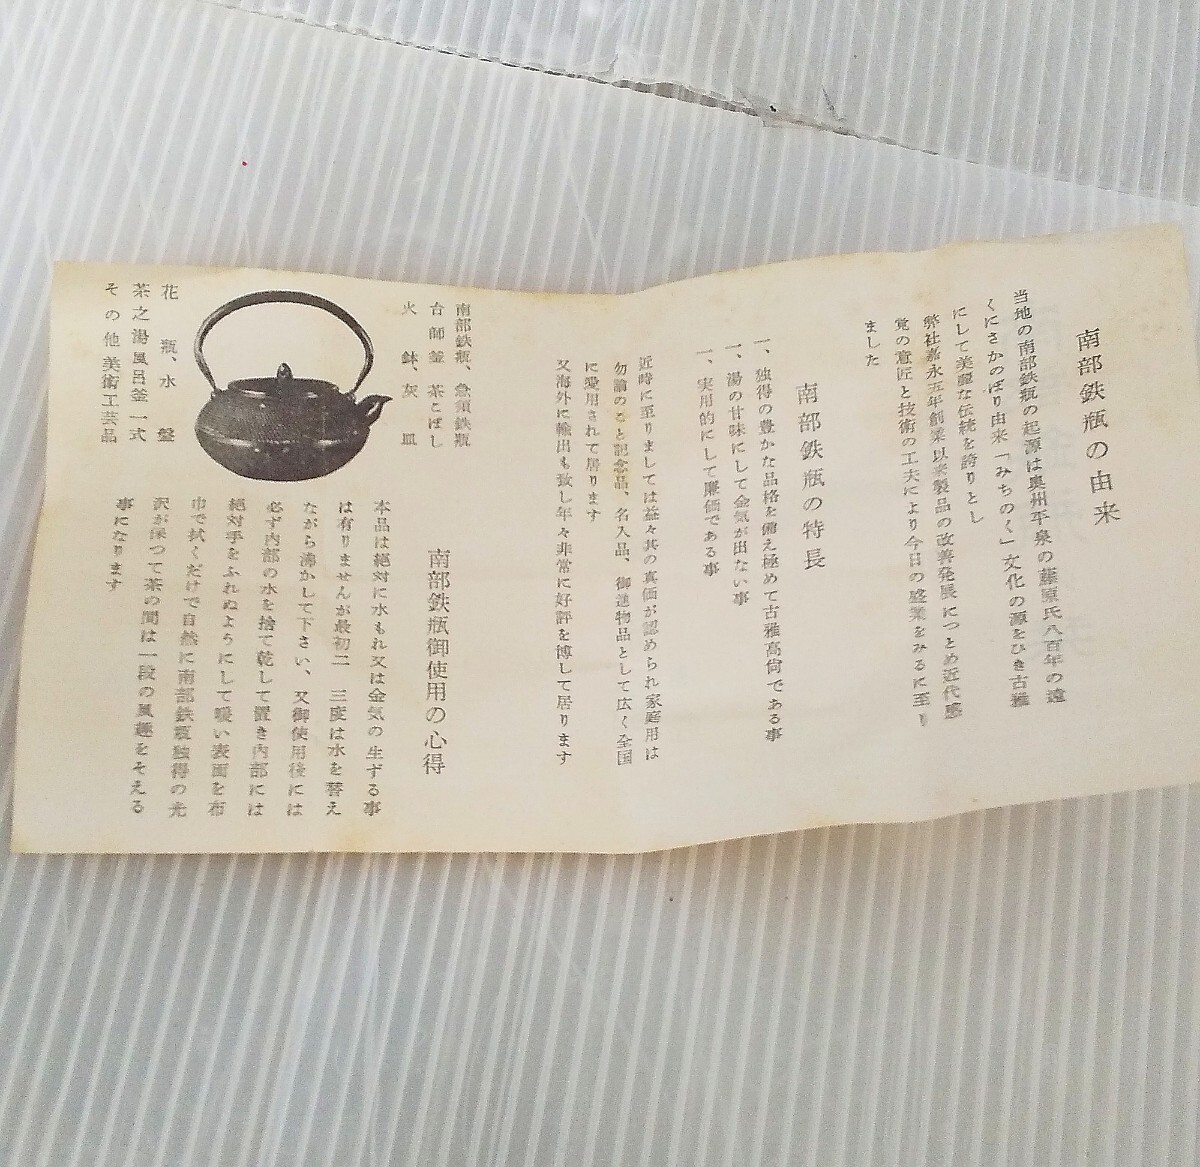 南部鉄瓶の由来
当地の南部鉄瓶の起源は奥州平泉の藤原氏八百年の遠
くにさかのぼり由来「みちのく」文化の源をひき古雅
にして美麗な伝統を誇りとし
弊社嘉永五年創業以来製品の改善発展につとめ近代感
覚の意匠と技術の工夫により今日の盛業をみるに至り
ました
南部鉄瓶の特長
一、独得の豊かな品格を備え極めて古雅高尚である事
一、湯の甘味にして金気が出ない事
一、実用的にして廉価である事
近時に至りましては益々其の真価が認められ家庭用は
勿論のこと記念品、名入品、御進物品として広く全国
に愛用されて居ります
又海外に輸出も致し年々非常に好評を博して居ります
南部鉄瓶、急須鉄瓶
台師釜 茶こぼし
火鉢、灰皿
花瓶、水盤
茶之湯風呂釜一式
その他美術工芸品
南部鉄瓶御使用の心得
本品は絶対に水もれ又は金気の生ずる事
は有りませんが最初二 三度は水を替え
ながら沸かして下さい、又御使用後には
必ず内部の水を捨て乾して置き内部には
絶対手をふれぬようにして暖い表面を布
巾で拭くだけで自然に南部鉄瓶独得の光
沢が保つて茶の間は一段の風趣をそえる
事になります